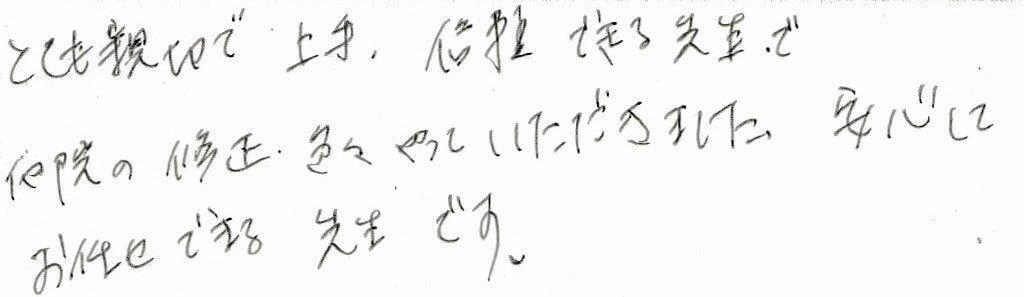 とても親切で上手、信頼できる先生で
他院の修正、色々やっていただきました、安心して
お任せできる先生です。